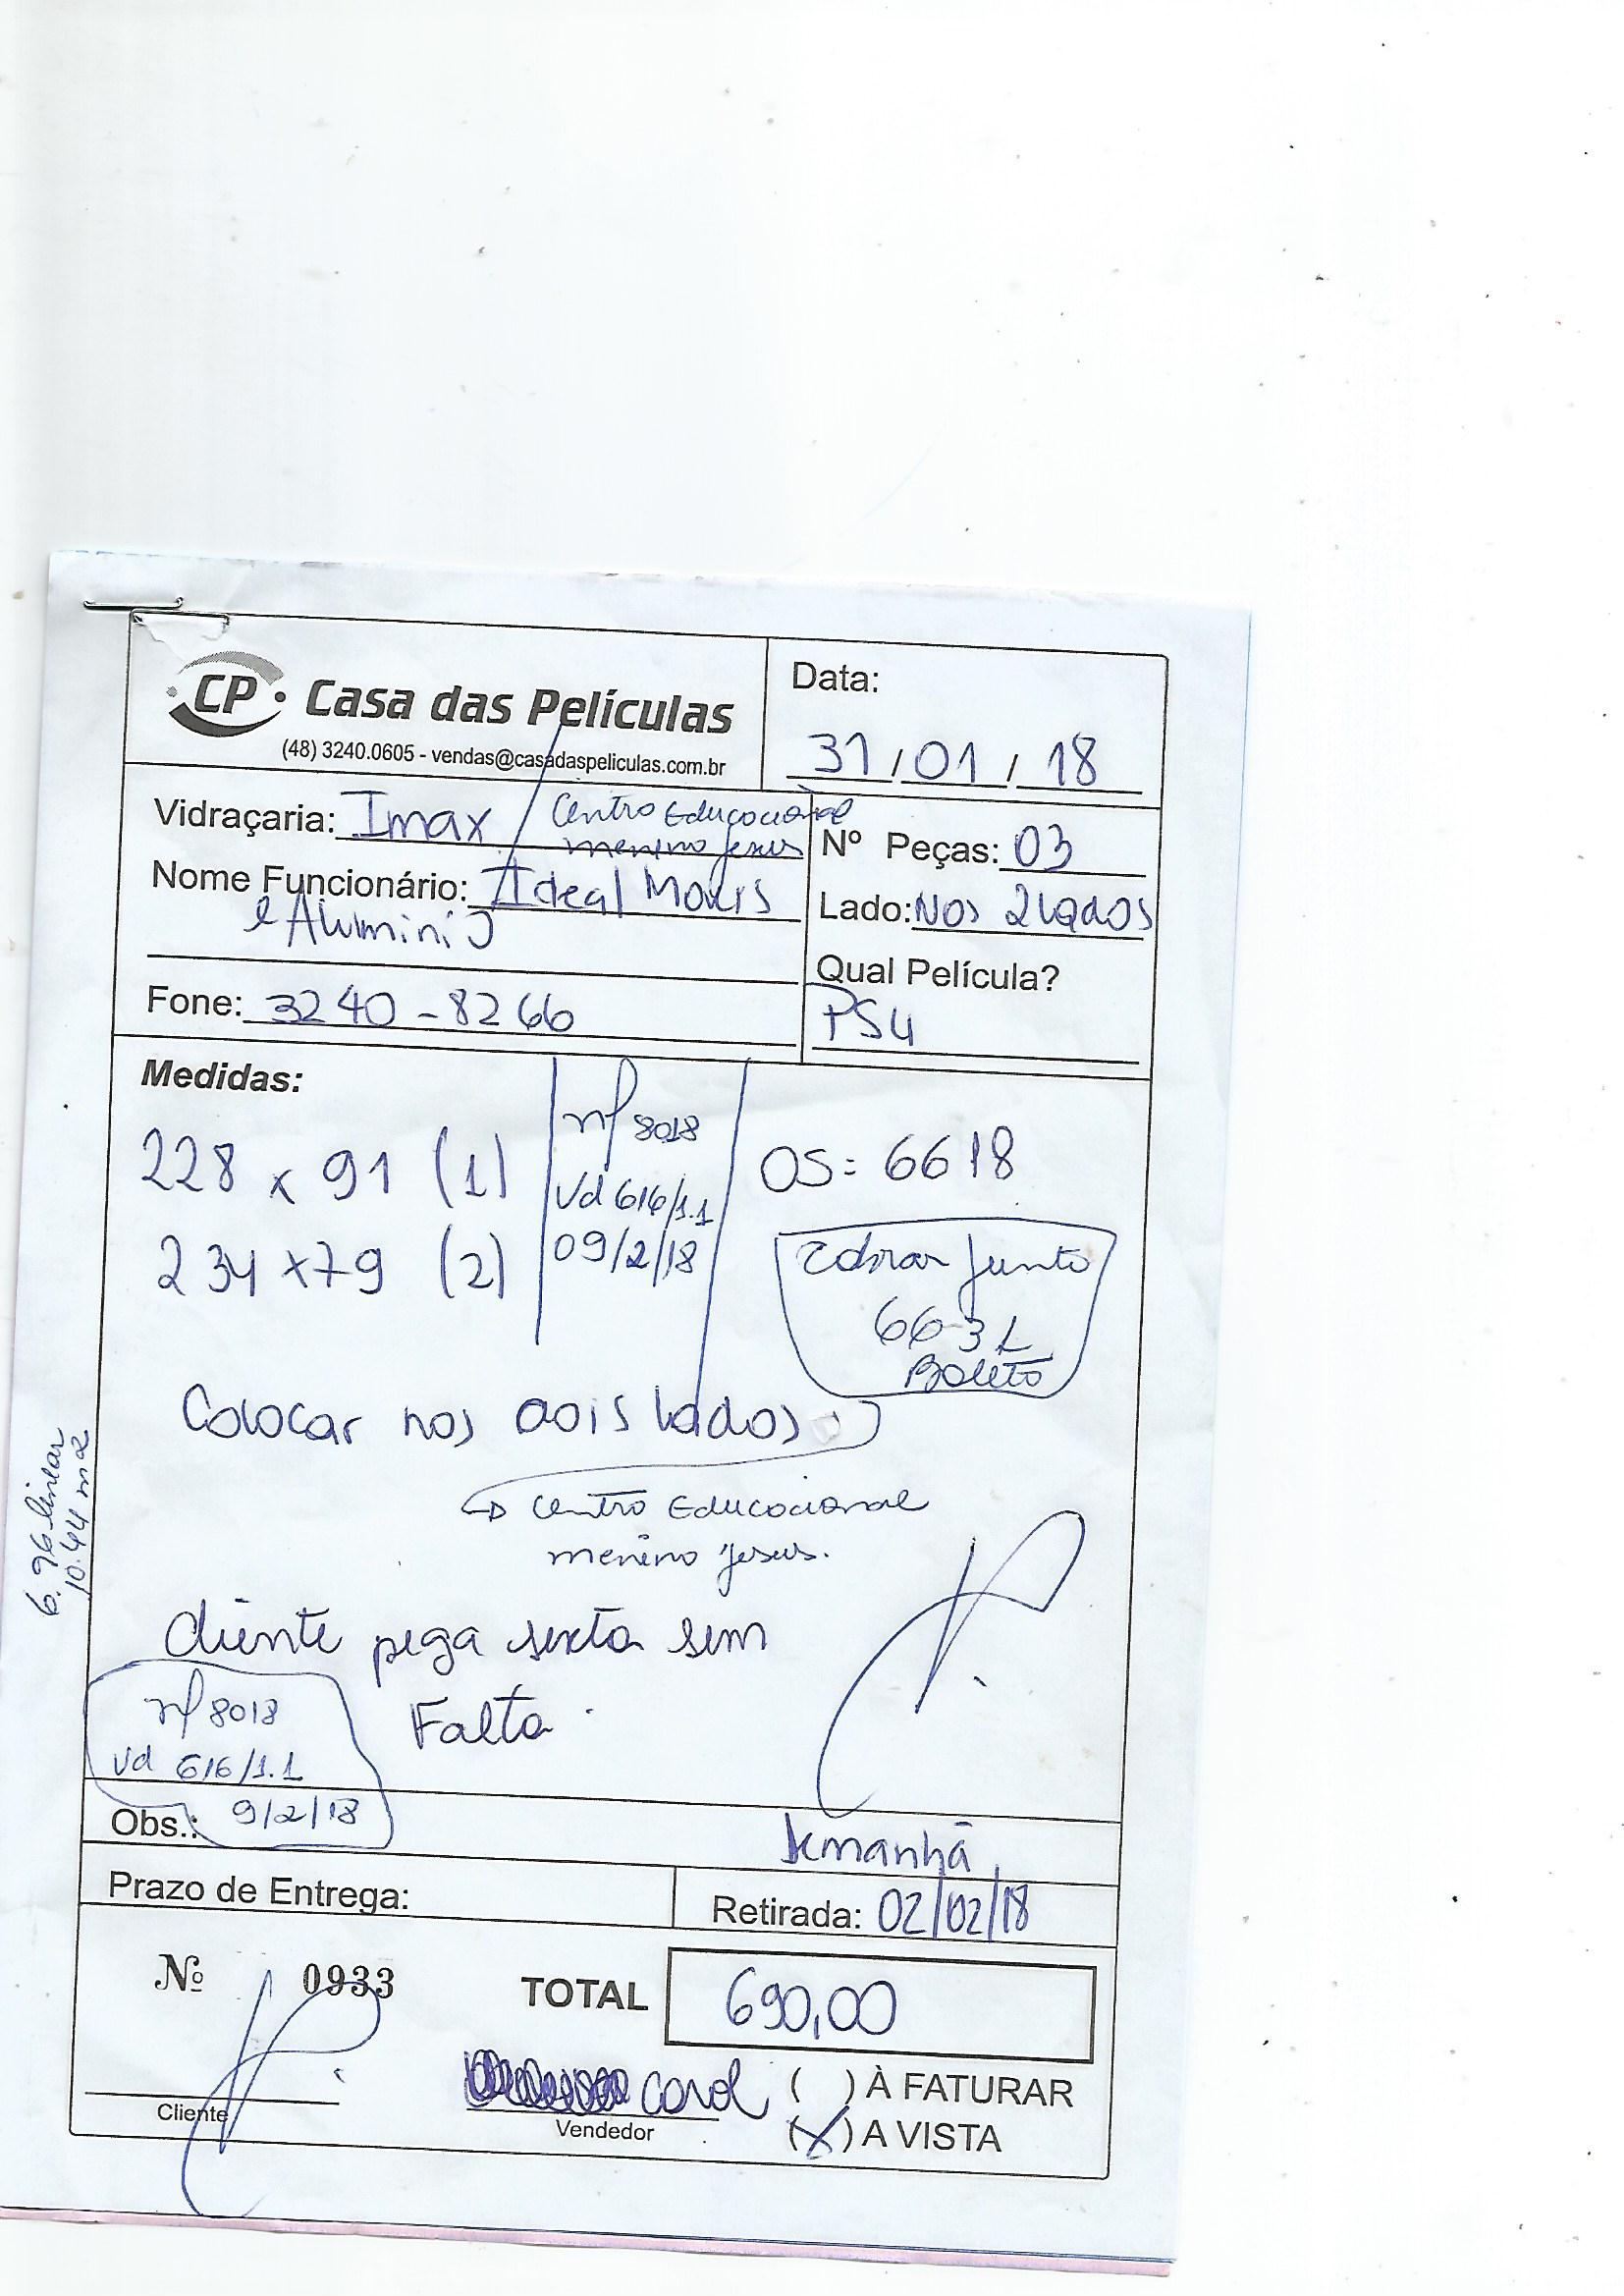 CP Casa das Películas
(48) 3240.0605 - vendas@casadaspeliculas.com.br
Data:
31/01/18
Vidraçaria: Imax / Centro Educacional
menino Jesus
Nº Peças: 03
Nome Funcionário: Ideal Moveis
e Aluminio
Lado: Nos 2 lados
Qual Película?
PS4
Fone: 3240-8266
Medidas:
228 x 91 (1)
234 x 79 (2)
nf 8018
vd 616/1.1
09/2/18
OS: 6618
Cobrar junto
6631
Boleto
Colocar nos dois lados
Centro Educacional
menino Jesus.
6.96 linear
10.44 m2
Cliente pega sexta sem
Falta
nf 8018
vd 616/1.1
9/2/18
Obs.:
manhã
Prazo de Entrega:
Retirada: 02/02/18
Nº 0933
TOTAL 690,00
Carol
Cliente
Vendedor
( ) À FATURAR
(X) A VISTA